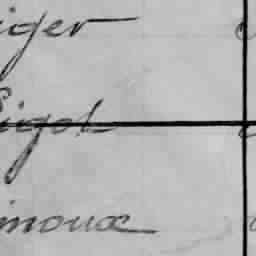 iger
Rigot
inoux